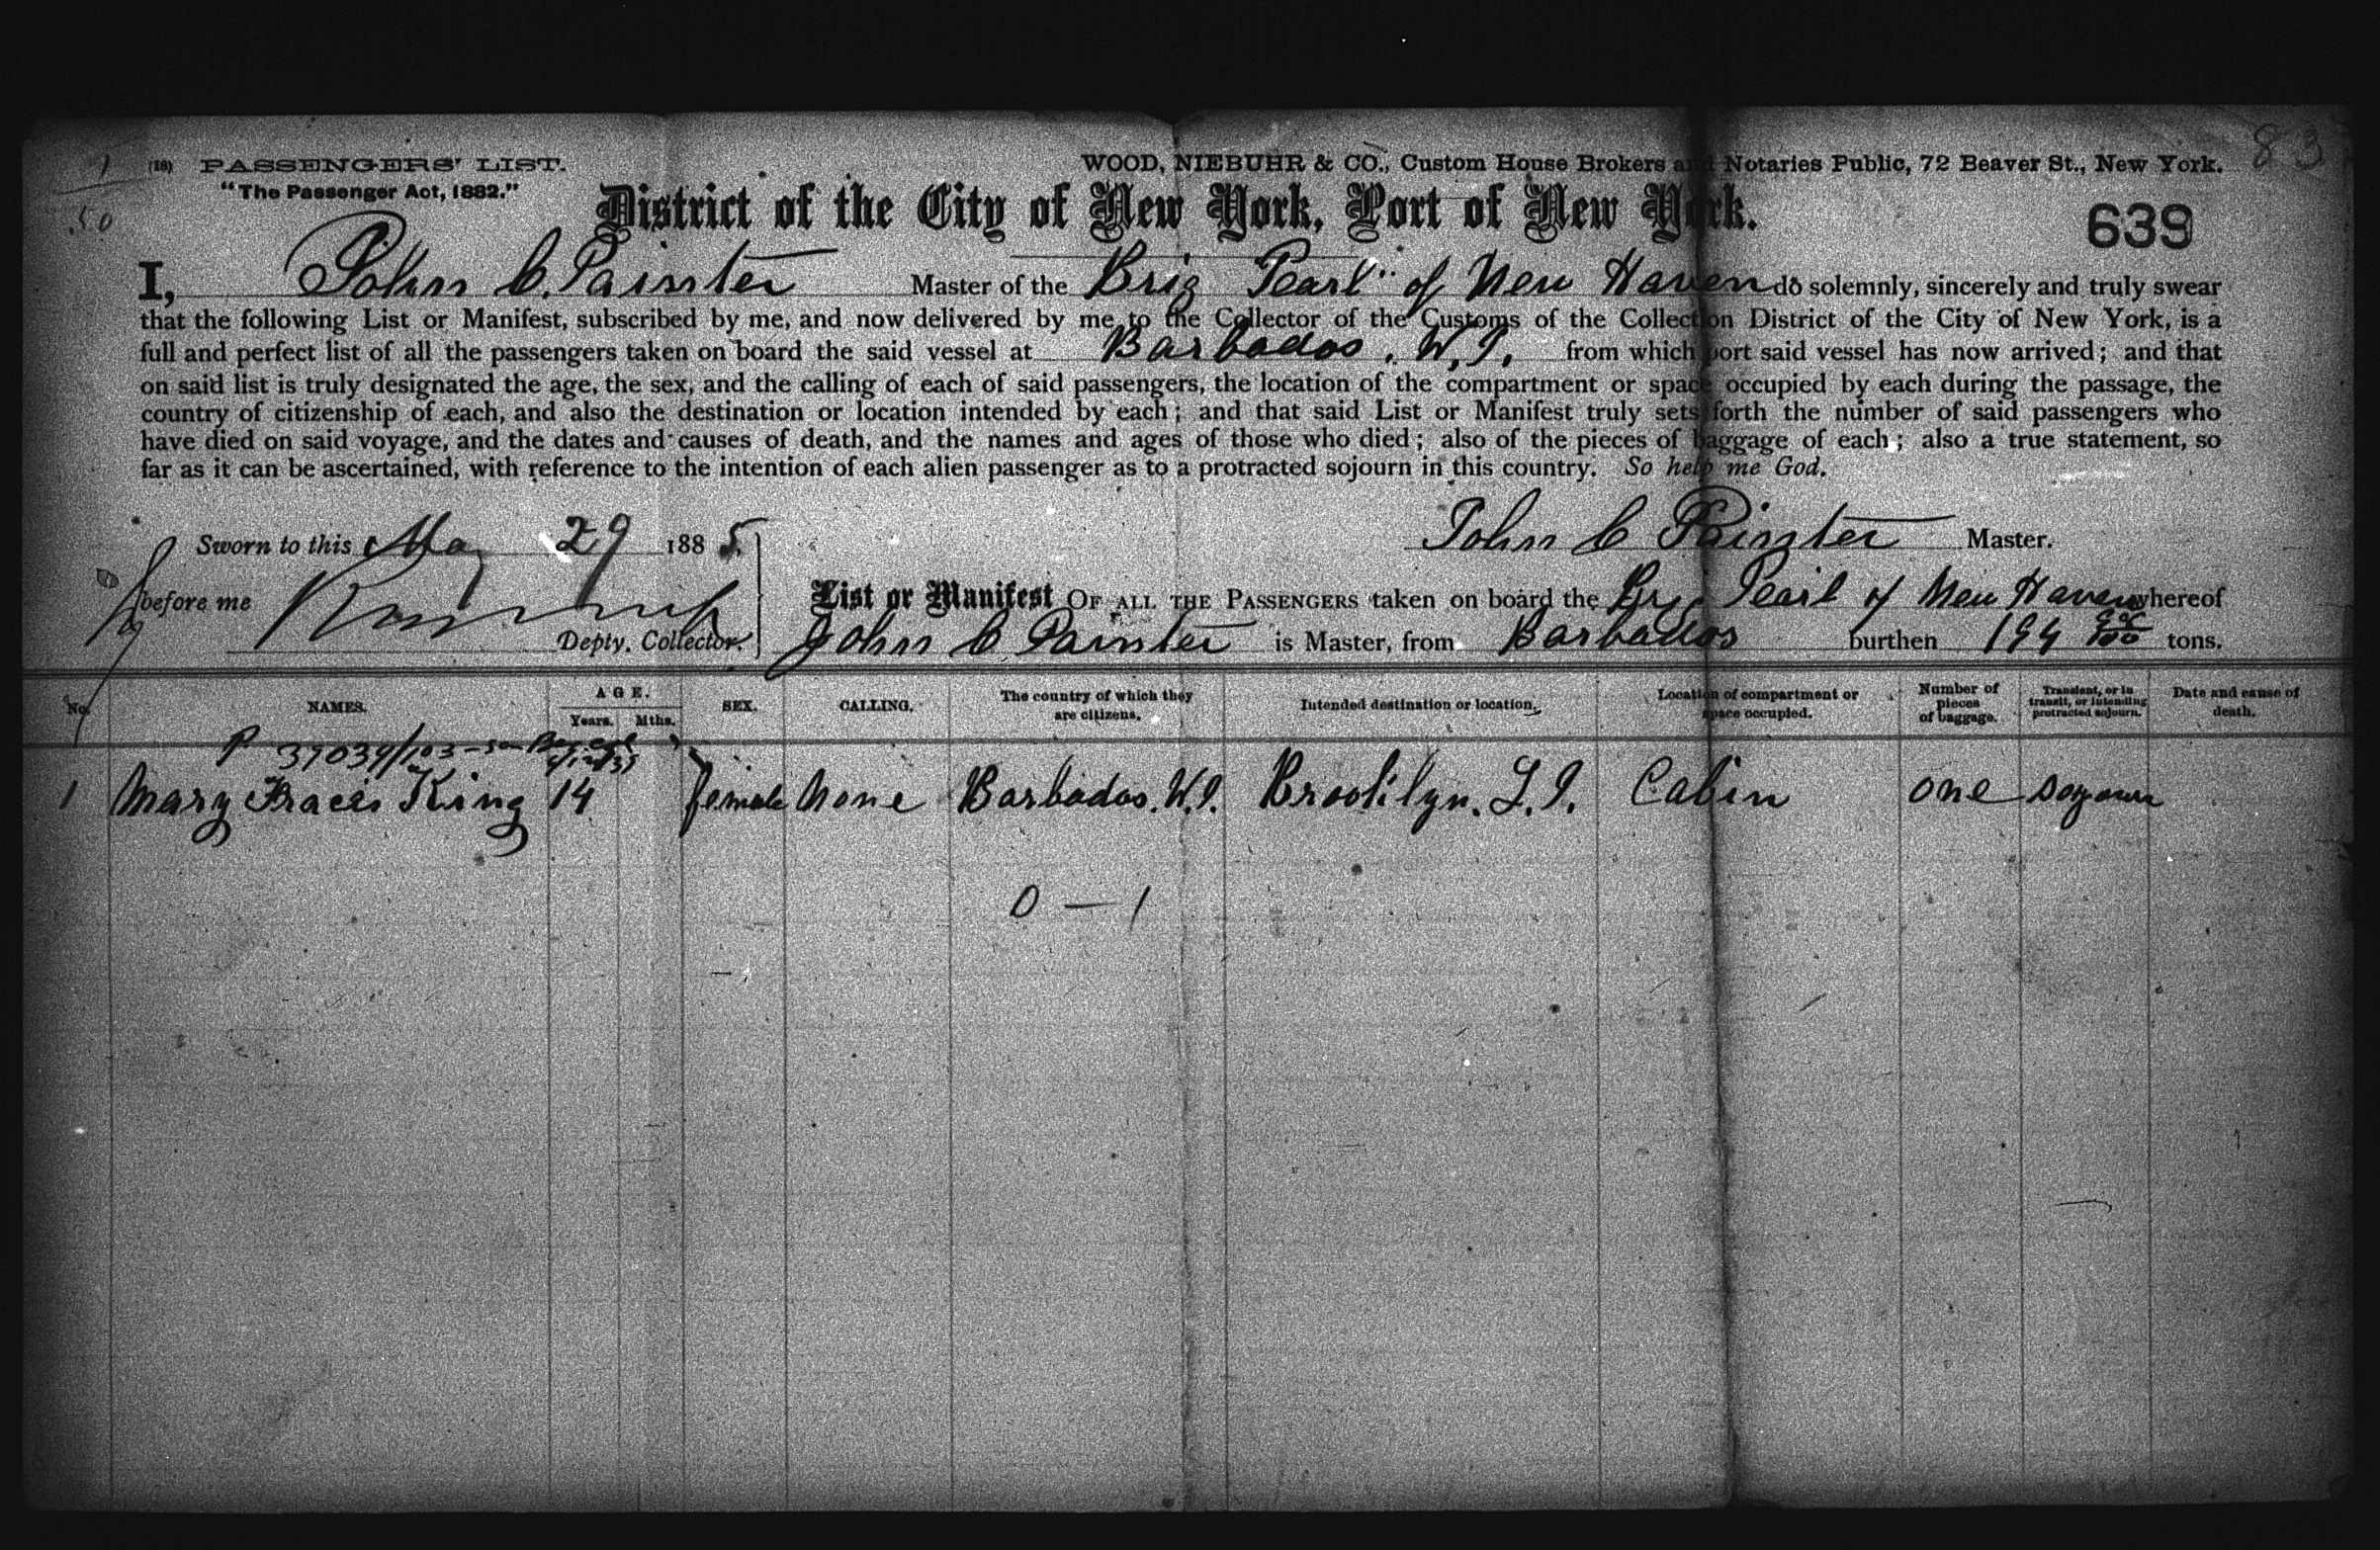 1
50
(18) PASSENGERS' LIST.
"The Passenger Act, 1882."
WOOD, NIEBUHR & CO., Custom House Brokers and Notaries Public, 72 Beaver St., New York.
83
District of the City of New York, Port of New York.
639
I, John C. Painter Master of the Brig "Pearl" of New Haven do solemnly, sincerely and truly swear
that the following List or Manifest, subscribed by me, and now delivered by me to the Collector of the Customs of the Collection District of the City of New York, is a
full and perfect list of all the passengers taken on board the said vessel at Barbados. W.I. from which port said vessel has now arrived; and that
on said list is truly designated the age, the sex, and the calling of each of said passengers, the location of the compartment or space occupied by each during the passage, the
country of citizenship of each, and also the destination or location intended by each; and that said List or Manifest truly sets forth the number of said passengers who
have died on said voyage, and the dates and causes of death, and the names and ages of those who died; also of the pieces of baggage of each; also a true statement, so
far as it can be ascertained, with reference to the intention of each alien passenger as to a protracted sojourn in this country. So help me God.
Sworn to this May 29 1885.
John C Painter Master.
before me
Depty. Collector.
List or Manifest OF ALL THE PASSENGERS taken on board the Brig Pearl of New Haven whereof
John C Painter is Master, from Barbados burthen 194 tons.
No. NAMES. AGE. Years. Mths. SEX. CALLING. The country of which they are citizens. Intended destination or location. Location of compartment or space occupied. Number of pieces of baggage. Transient, or in transit, or intending protracted sojourn. Date and cause of death.
1 Mary Fraces King 14 female None Barbados. W.I. Brooklyn. L.I. Cabin one sojourn
0 — 1